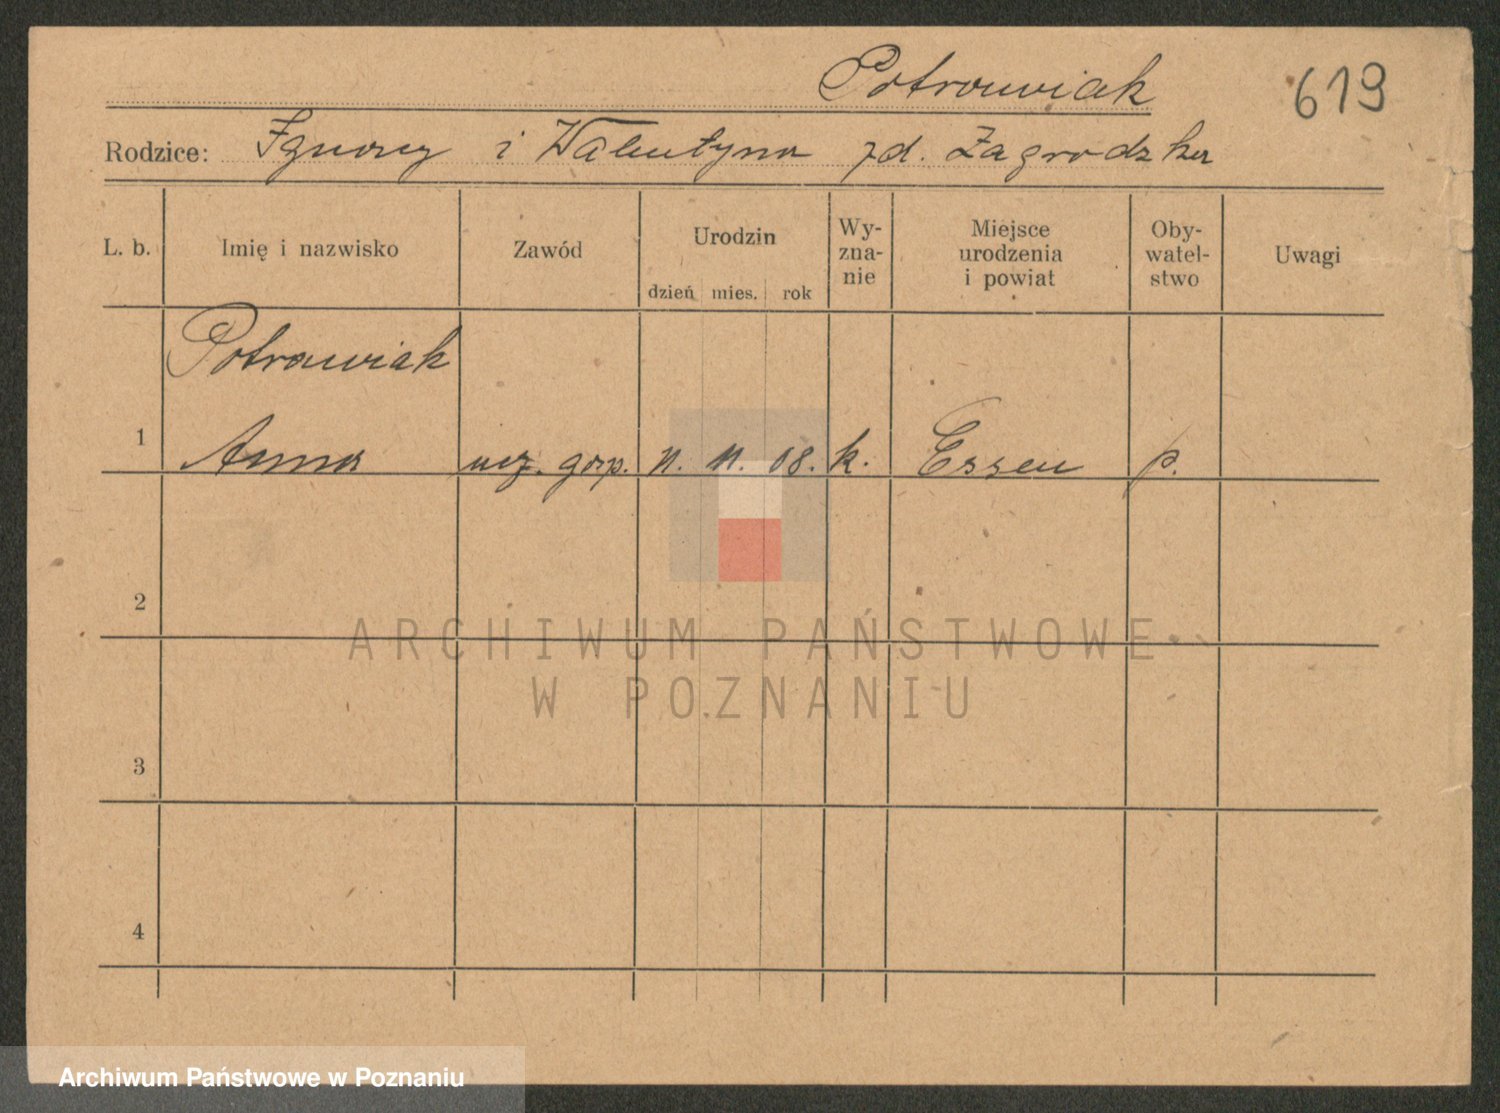 Potrawiak 619
Rodzice: Ignacy i Walentyna zd. Zagrodzka
L. b. Imię i nazwisko Zawód Urodzin dzień mies. rok Wy-zna-nie Miejsce urodzenia i powiat Oby-watel-stwo Uwagi
Potrawiak
1 Anna ucz. gosp. 11. 11. 08. k. Essen p.
2
3
4
ARCHIWUM PAŃSTWOWE
W POZNANIU
Archiwum Państwowe w Poznaniu